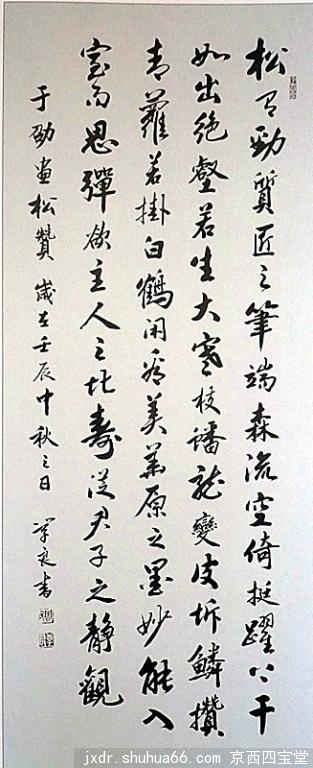 松有勁質匠之筆端森流空倚挺躍以干
如出絶壑若生大寒枝蟠龍變皮坼鱗攢
青蘿若掛白鶴閑看美華原之墨妙能入
室而思彈欲主人之比壽從君子之靜觀
于劭畫松贊 歲在壬辰中秋之日 良書
jxdr.shuhua66.com 京西四宝堂